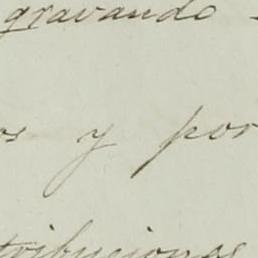 gravando
os y por
tribuciones